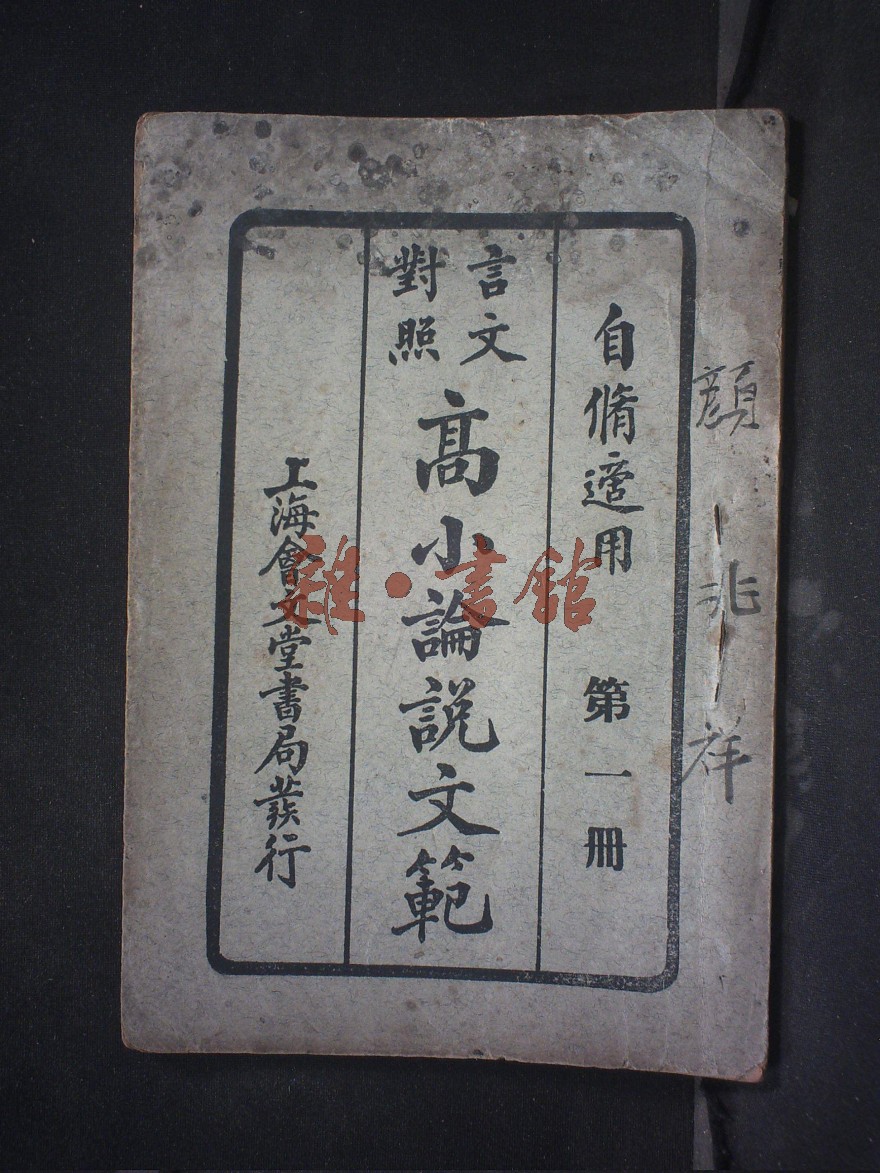 顏兆祥
自脩適用 第一冊
言文
對照
高小論説文範
上海會文堂書局發行
雜·書館